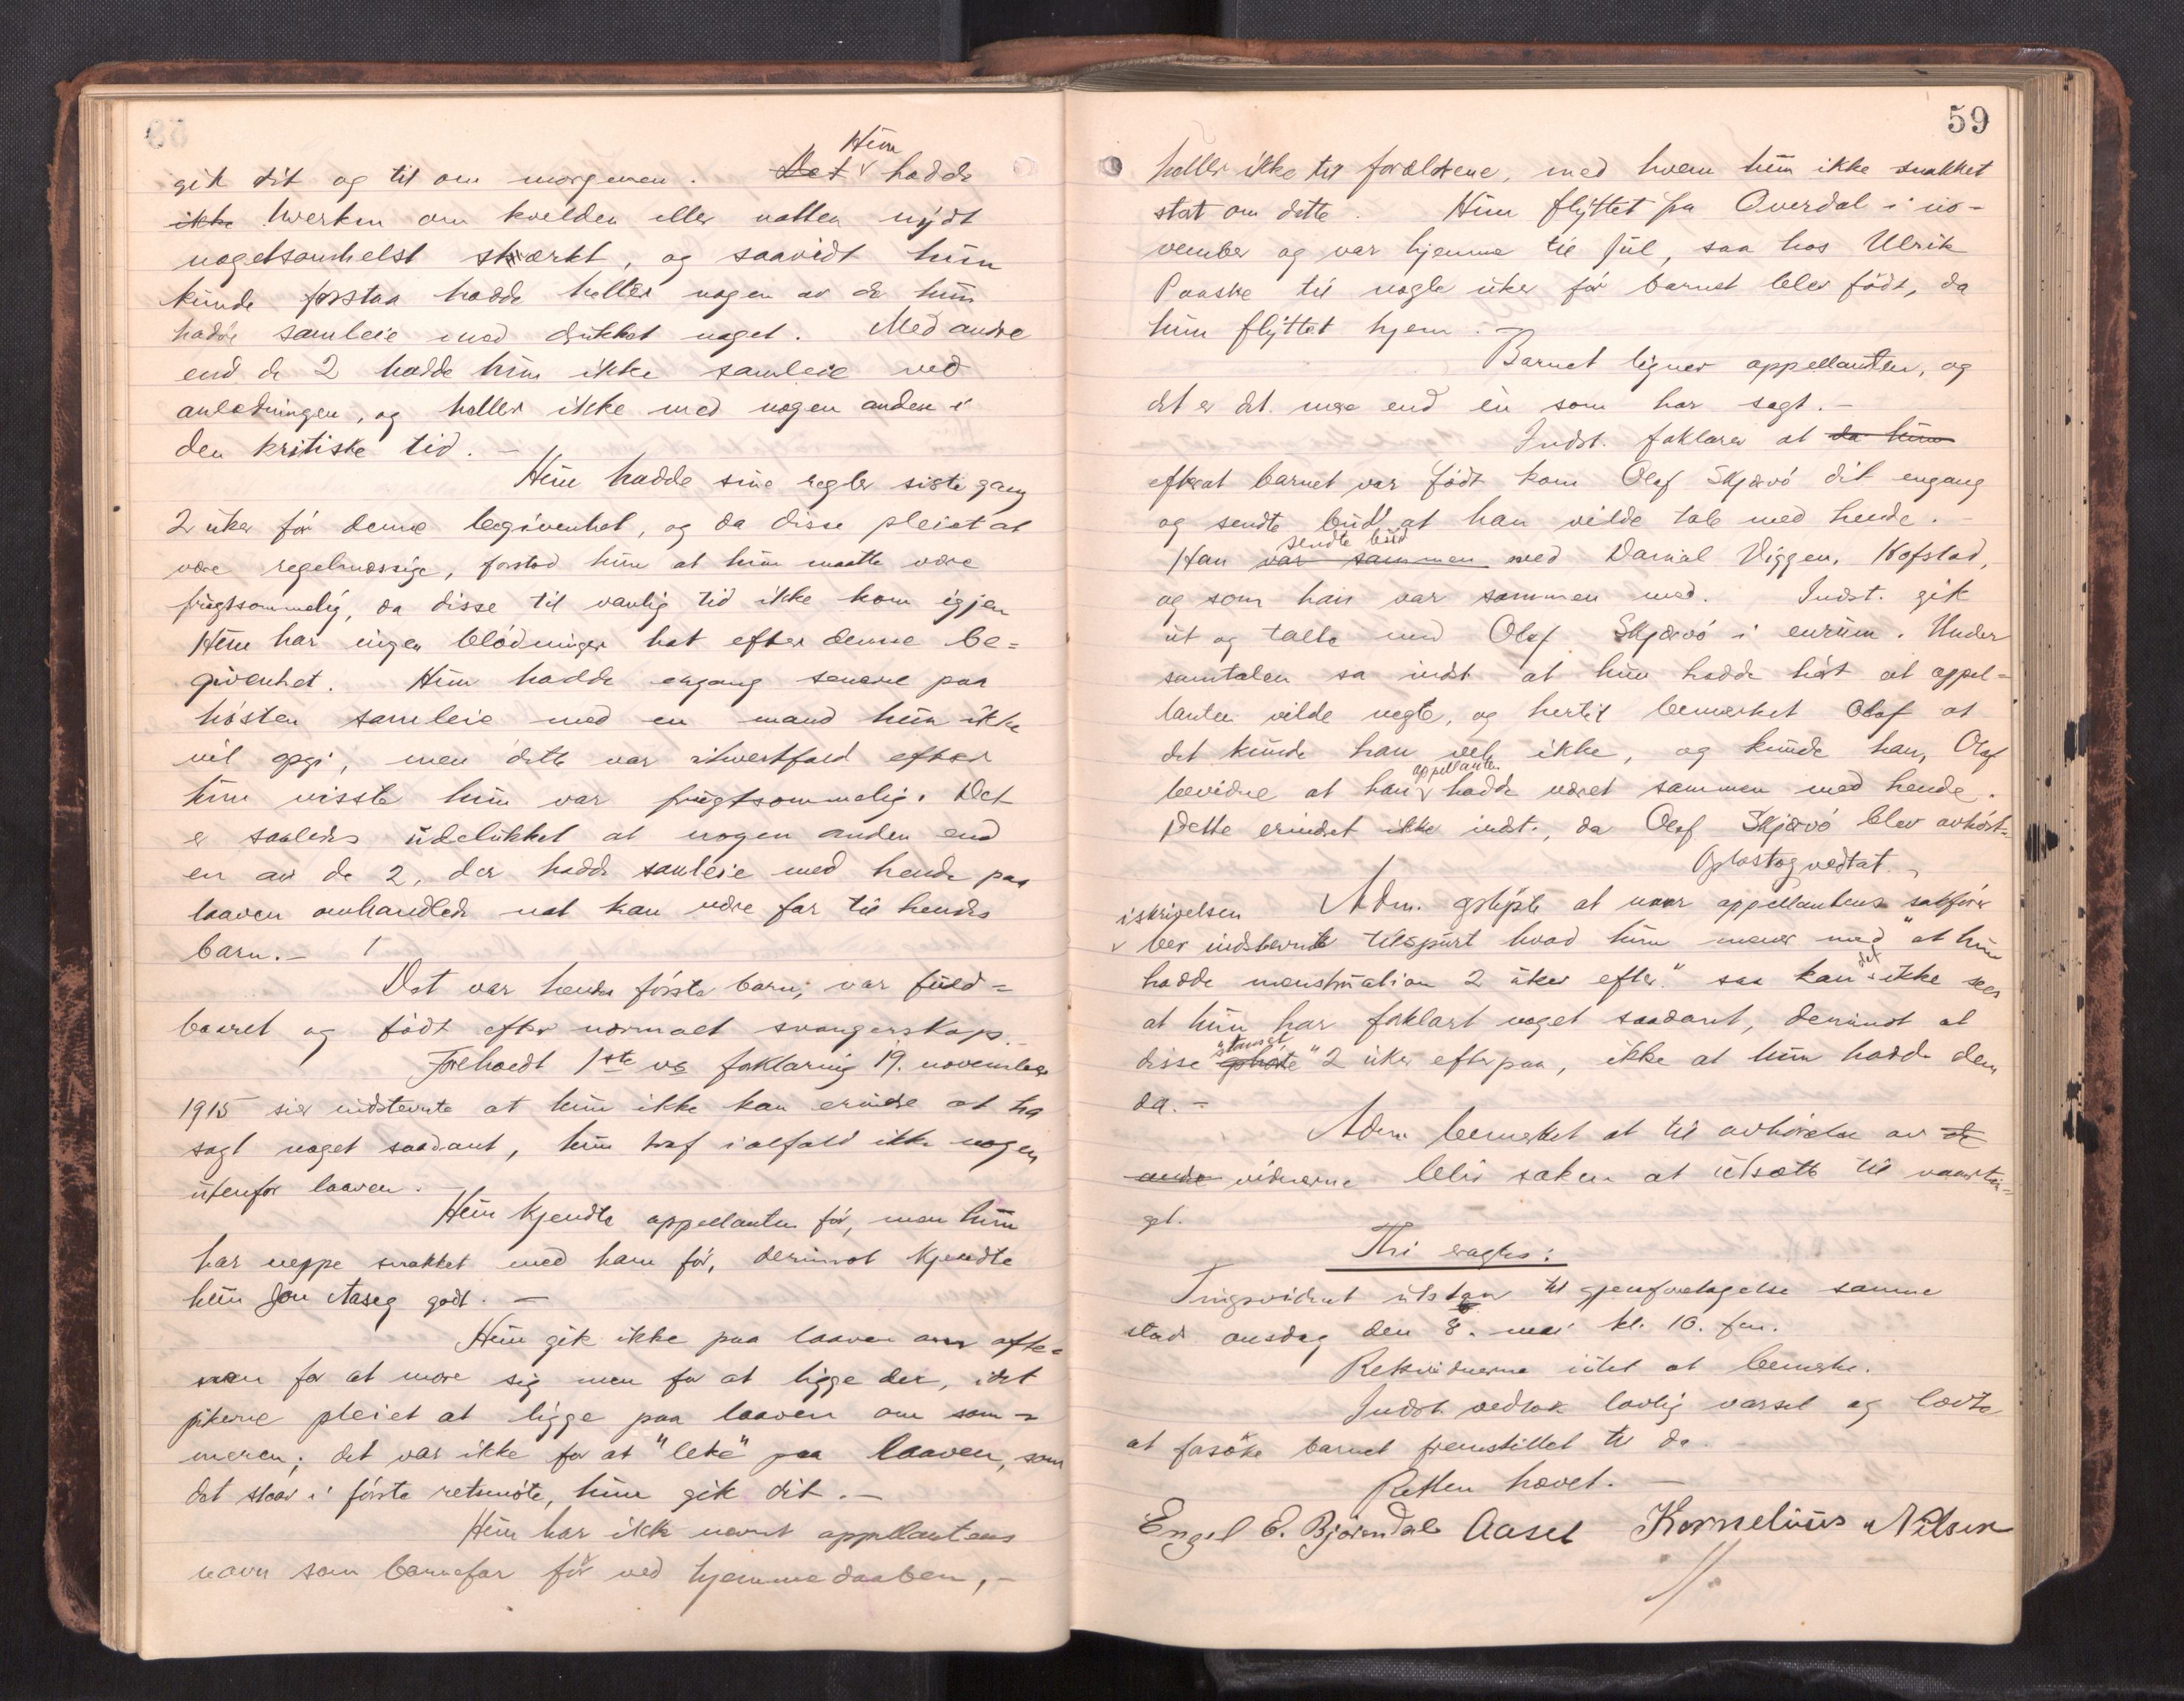 gik dit og til om morgenen. Det Hun hadde
ikke hverken om kvelden eller natten nydt
nogetsomhelst stærkt, og saavidt hun
kunde forstaa hadde heller nogen av de hun
hadde samleie med drukket noget. Med andre
end de 2 hadde hun ikke samleie ved
anledningen, og heller ikke med nogen anden i
den kritiske tid. –
Hun hadde sine regler siste gang
2 uker før denne begivenhet, og da disse pleiet at
være regelmæssige, forstod hun at hun maatte være
frugtsommelig, da disse til vanlig tid ikke kom igjen
Hun har ingen blødninger hat efter denne be=
givenhet. Hun hadde engang senere paa
høsten samleie med en mand hun ikke
vil opgi, men dette var ialvertfald efter
hun visste hun var frugtsommelig. Det
er saaledes udelukket at nogen anden end
en av de 2, der hadde samleie med hende paa
laaven omhandlede nat kan være far til hendes
barn. –
Det var hendes første barn; var fuld=
baaret og født efter normalt svangerskap.
Foreholdt 1ste vs forklaring 19. november
1915 sier indstevnte at hun ikke kan erindre at ha
sagt noget saadant, hun traf i alfald ikke nogen
utenfor laaven.
Hun kjendte appellanten før, men hun
har neppe snakket med ham før, derimot kjendte
hun Jon Aaseg godt. –
Hun gik ikke paa laaven om afte=
nen for at more sig men for at ligge der, idet
pikerne pleiet at ligge paa laaven om som=
meren; det var ikke for at "leke" paa laaven, som
det staar i første retsmøte, hun gik dit. –
Hun har ikke nævnt appellantens
navn som barnefar før ved hjemmedaaben, –
59
heller ikke til forældrene, med hvem hun ikke snakket
stort om dette. Hun flyttet fra Overdal i no-
vember og var hjemme til Jul, saa hos Ulrik
Paaske til nogle uker før barnet blev født, da
hun flyttet hjem. –
Barnet ligner appellanten, og
det er det mere end èn som har sagt. –
Indst. forklarer at da hun
efterat barnet var født kom Olaf Skjævø dit engang
og sendte bud at han vilde tale med hende.
Han var sammen sendte bud med Daniel Viggen, Kofstad,
og som han var sammen med. Indst. gik
ut og talte med Olaf Skjævø i enrum. Under
samtalen sa indst. at hun hadde hørt at appel=
lanten vilde negte, og hertil bemerket Olaf at
det kunde han vel ikke, og kunde han, Olaf
bevidne at han appellanten hadde været sammen med hende.
Dette erindret ikke indst., da Olaf Skjævø blev avhørt.
Oplæst og vedtat.
Adm. oplyste at naar appellantens sakfører
i skrivelsen ber indstevnte tilspurt hvad hun mener med "at hun
hadde menstruation 2 uker efter" saa kan det ikke sees
at hun har forklart noget saadant, derimot at
disse ophørte "stanset" 2 uker efterpaa, ikke at hun hadde dem
da. –
Adm. bemerket at til avhørelse av de
andre vidnerne blir saken at utsætte til vaartin=
get.
Thi eragtes:
Tingsvidnet utstaar til gjenforetagelse samme
sted onsdag den 8. mai kl. 10. fm.
Retsvidnerne intet at bemerke.
Indst. vedtok lovlig varsel og lovte
at forsøke barnet fremstillet til da. –
Retten hævet. –
Engel E. Bjørndal Aasel Kornelius Nilsen